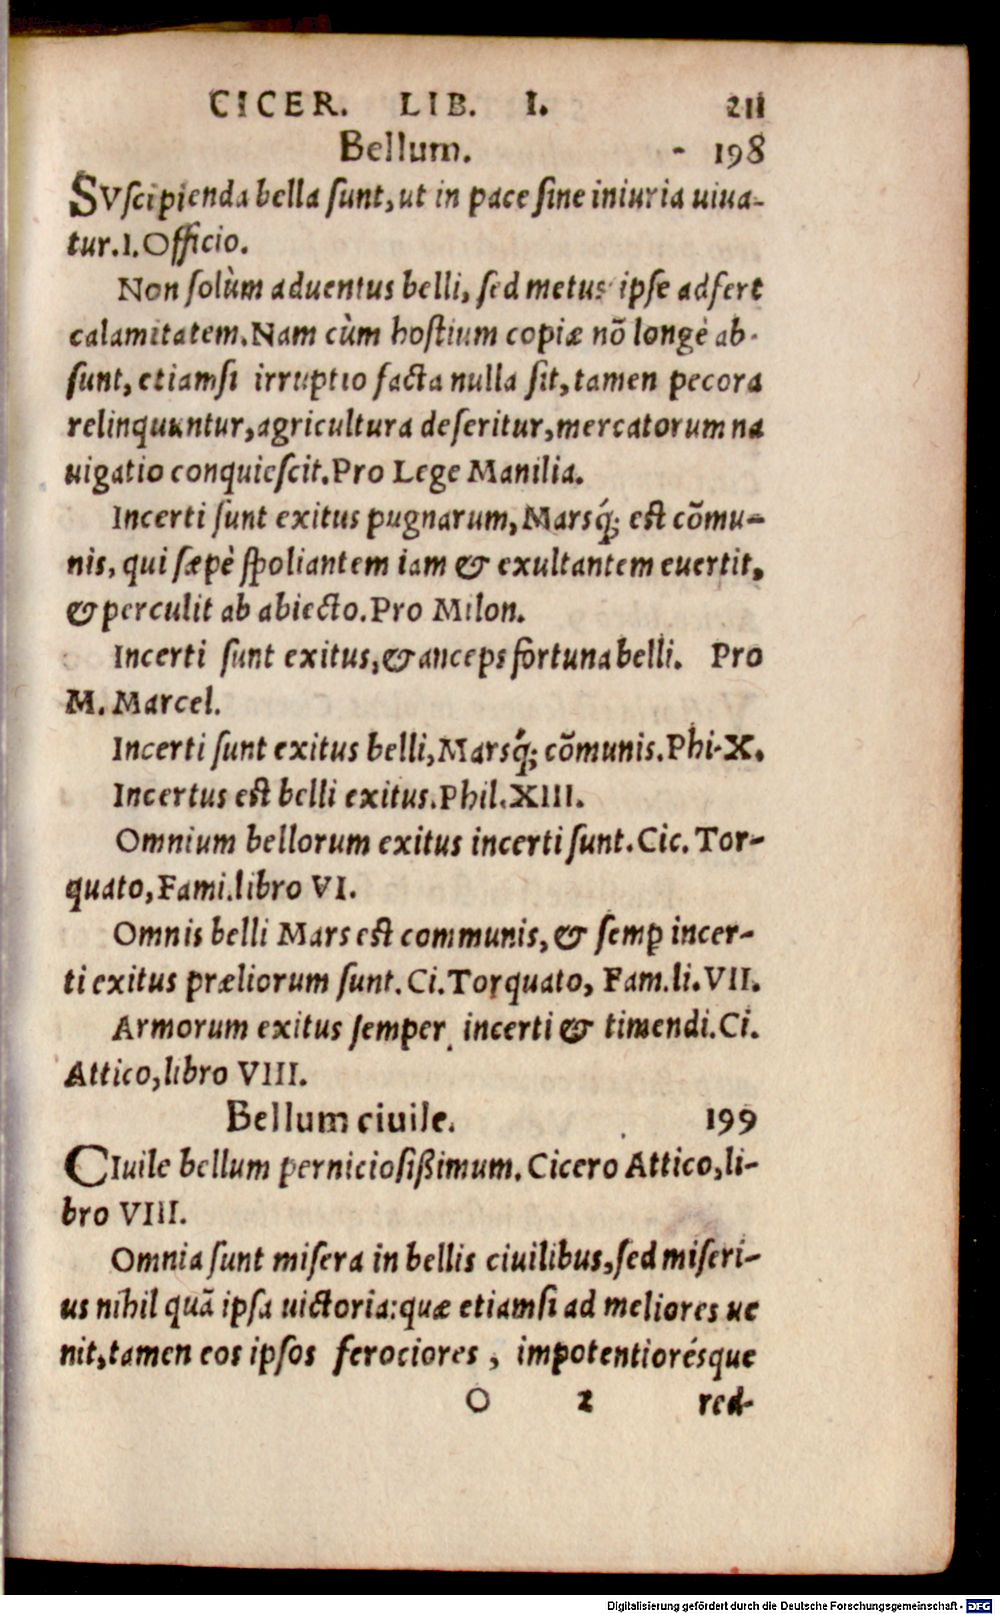 CICER. LIB. I. 211
Bellum. - 198
SVſcipienda bella ſunt, ut in pace ſine iniuria uiua-
tur. I. Officio.
Non ſolùm aduentus belli, ſed metus ipſe adfert
calamitatem. Nam cùm hoſtium copiæ nõ longè ab-
ſunt, etiamſi irruptio facta nulla ſit, tamen pecora
relinquuntur, agricultura deſeritur, mercatorum na
uigatio conquieſcit. Pro Lege Manilia.
Incerti ſunt exitus pugnarum, Marsq́; eſt cõmu-
nis, qui ſæpè ſpoliantem iam & exultantem euertit,
& perculit ab abiecto. Pro Milon.
Incerti ſunt exitus, & anceps fortuna belli. Pro
M. Marcel.
Incerti ſunt exitus belli, Marsq́; cõmunis. Phi. X.
Incertus eſt belli exitus. Phil. XIII.
Omnium bellorum exitus incerti ſunt. Cic. Tor-
quato, Fami. libro VI.
Omnis belli Mars eſt communis, & ſemꝑ incer-
ti exitus præliorum ſunt. Ci. Torquato, Fam. li. VII.
Armorum exitus ſemper incerti & timendi. Ci.
Attico, libro VIII.
Bellum ciuile. 199
CIuile bellum pernicioſißimum. Cicero Attico, li-
bro VIII.
Omnia ſunt miſera in bellis ciuilibus, ſed miſeri-
us nihil quã ipſa uictoria: quæ etiamſi ad meliores ue
nit, tamen eos ipſos ferociores, impotentiorésque
O 2 red-
Digitalisierung gefördert durch die Deutsche Forschungsgemeinschaft - DFG